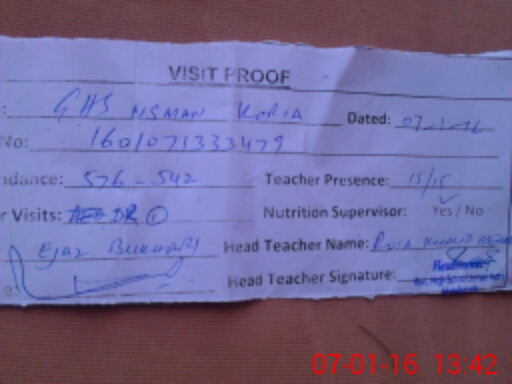 VISIT PROOF
: GHS USMAN KORIA Dated: 07-1-16
No: 1601071333479
ndance: 576-542 Teacher Presence: 15/15
r Visits: DR ① Nutrition Supervisor: Yes / No
EJAZ BUKHARI Head Teacher Name: KHALID
Head Teacher Signature:
07-01-16 13:42